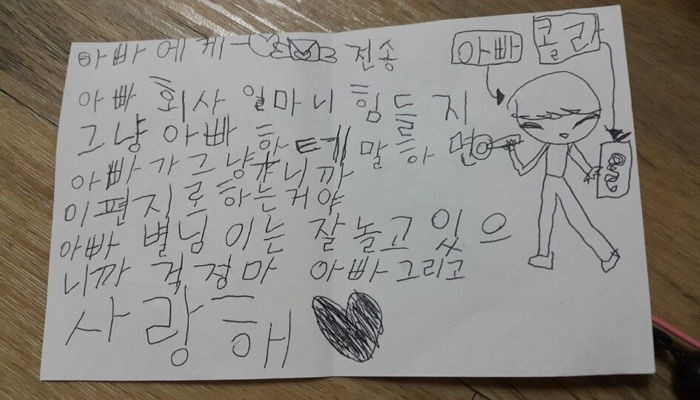 아빠에게 전송
아빠 콜라
아빠 회사 얼마니 힘들지
그냥 아빠 한테 말하면
아빠가 그냥 니까
이 편지로 하는거야
아빠 별님이는 잘놀고있으
니까 걱정마 아빠 그리고
사랑해